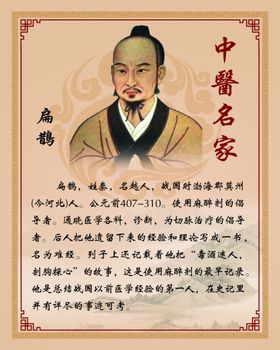 中醫名家
扁鹊
扁鹊，姓秦，名越人，战国时渤海郡莫州
(今河北)人。公元前407-310。使用麻醉剂的倡
导者。通晓医学各科，诊断，为切脉治疗的倡导
者。后人把他遗留下来的经验和理论写成一书，
名为难经。列子上还记载着他把“毒酒迷人，
刺胸探心”的故事，这是使用麻醉剂的最早记录。
他是总结战国以前医学经验的第一人，在史记里
并有详尽的事迹可考。